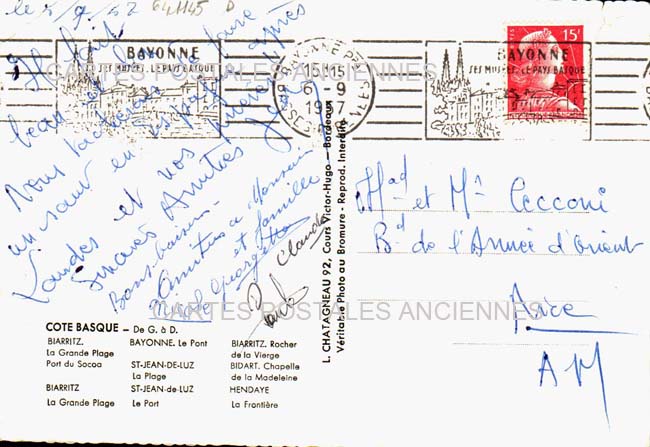 le 5/9/57 641145 D
Il fait
beau et
Nous tacherons de faire
un saut en
Lourdes et vos prières après
Sincères Amitiés Jean
Bons baisers
Amitiés à Monsieur
et famille
Nicole Georgette
Claude
BAYONNE
SES MUSÉES. LE PAYS BASQUE
BAYONNE
15H15
6-9
1957
BSES PYRENEES
BAYONNE
SES MUSÉES. LE PAYS BASQUE
15F
CARTES POSTALES ANCIENNES
Mad et Mr Cecconi
Bd de l'Armée d'Orient
Nice
AM
L. CHATAGNEAU 92, Cours Victor-Hugo — Bordeaux
Véritable Photo au Bromure - Reprod. Interdite
CARTES POSTALES ANCIENNES
COTE BASQUE — De G. à D.
BIARRITZ. BAYONNE. Le Pont BIARRITZ. Rocher
La Grande Plage de la Vierge
Port du Socoa ST-JEAN-DE-LUZ BIDART. Chapelle
La Plage de la Madeleine
BIARRITZ ST-JEAN-de-LUZ HENDAYE
La Grande Plage Le Port La Frontière